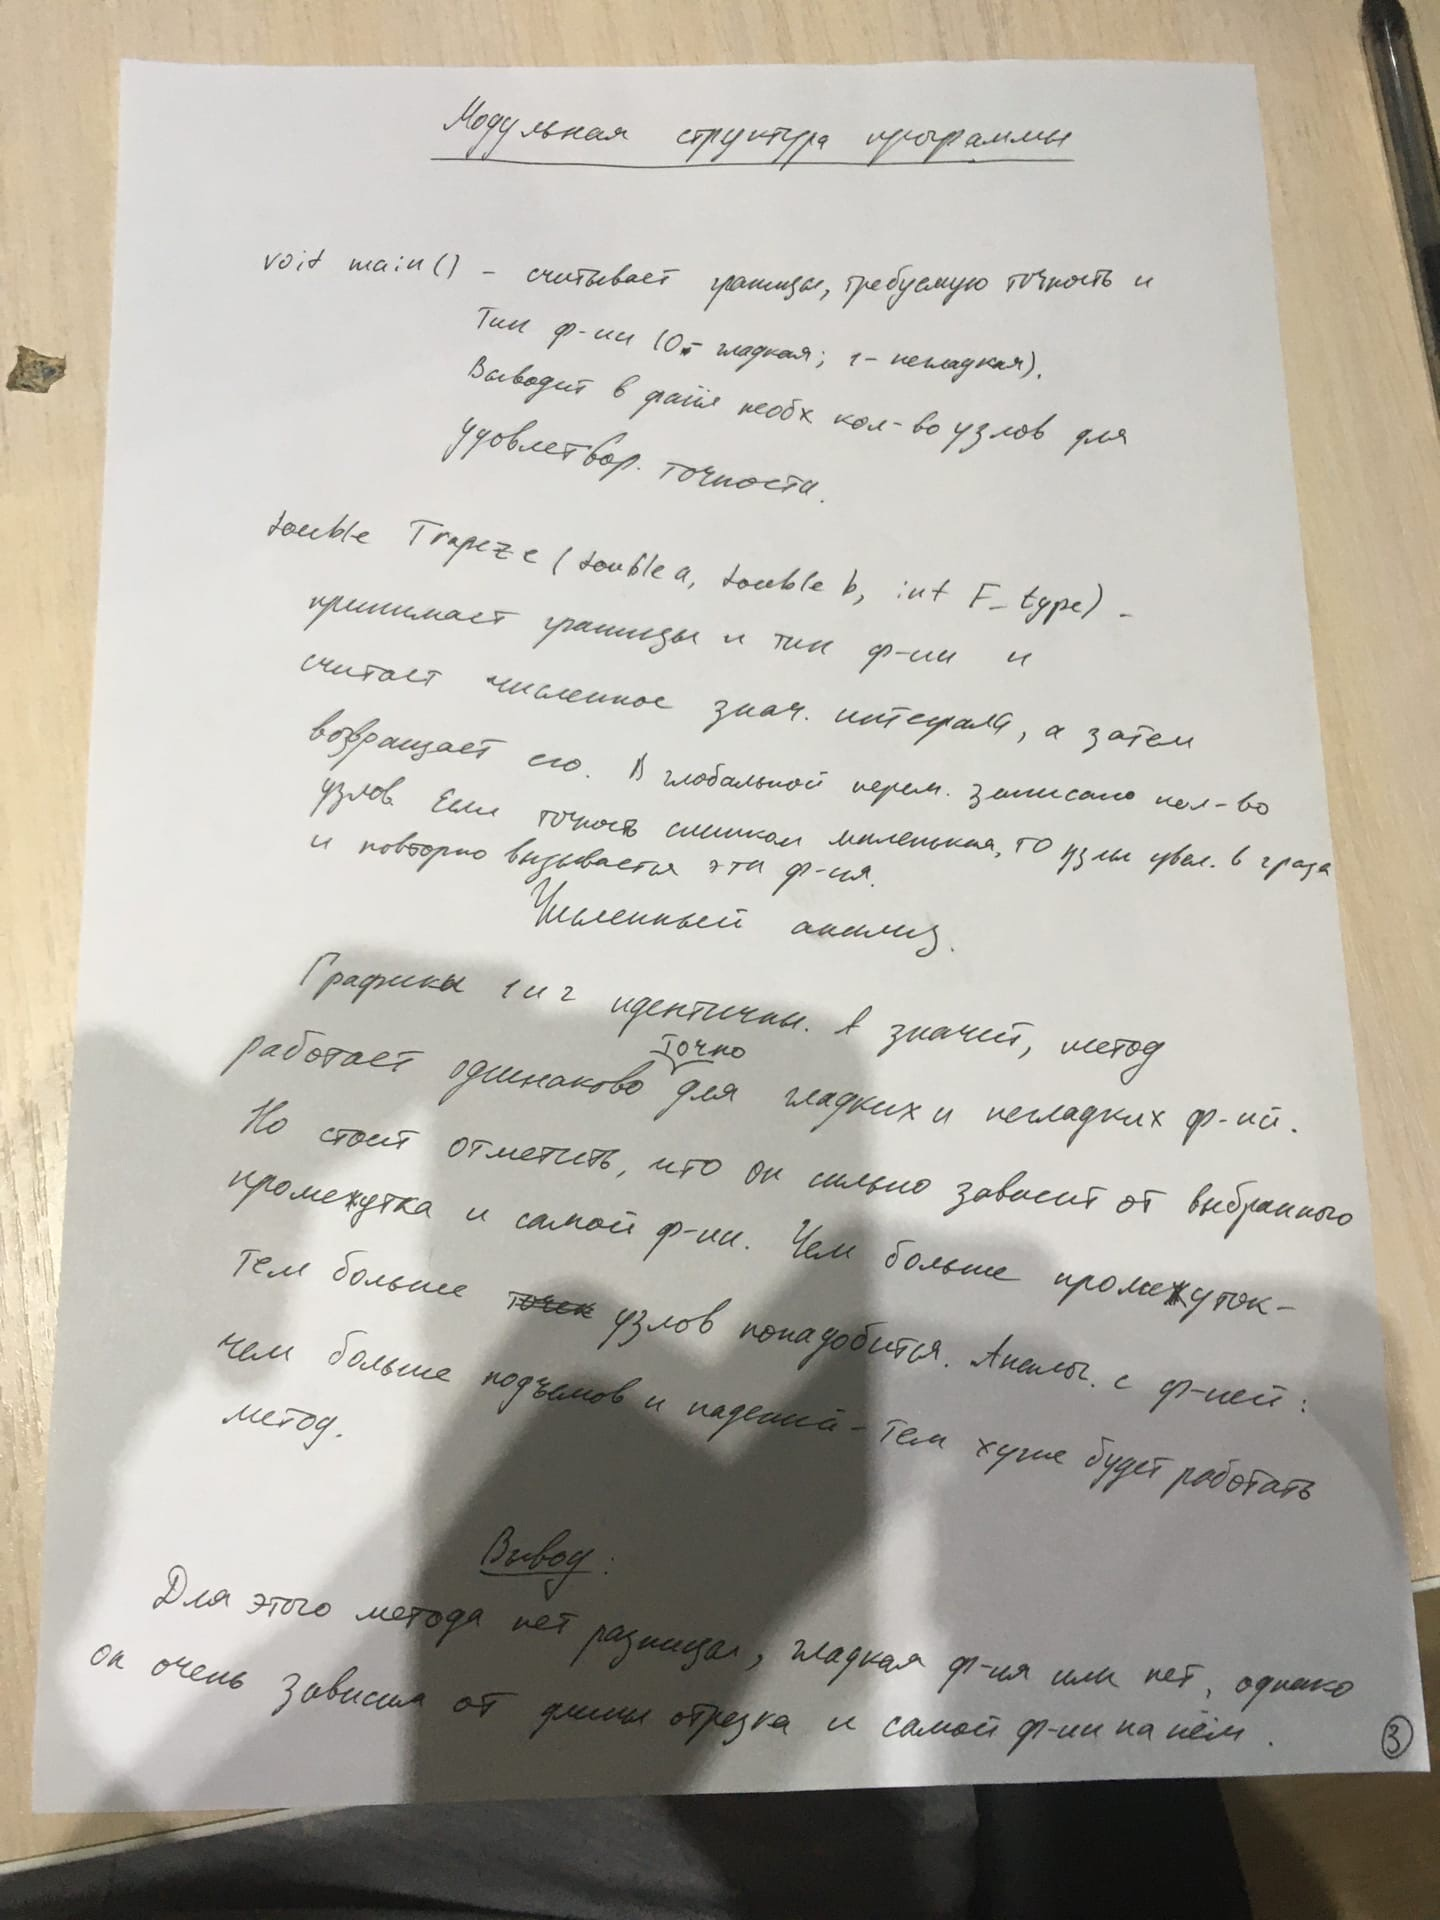 Модульная структура программы
void main() – считывает границы, требуемую точность и
тип ф-ии (0 – гладкая; 1 – негладкая).
Выводит в файл необх кол-во узлов для
удовлетвор. точности.
double Trapeze (double a, double b, int F_type) –
принимает границы и тип ф-ии и
считает численное знач. интеграла, а затем
возвращает его. В глобальной перем. записано кол-во
узлов. Если точность слишком маленькая, то узлы увел. в 2 раза
и повторно вызывается эта ф-ия.
Численный анализ.
Графики 1 и 2 идентичны. А значит, метод
работает одинаково точно для гладких и негладких ф-ий.
Но стоит отметить, что он сильно зависит от выбранного
промежутка и самой ф-ии. Чем больше промежуток –
тем больше точек узлов понадобится. Аналог. с ф-ией:
чем больше подъемов и падений – тем хуже будет работать
метод.
Вывод:
Для этого метода нет разницы, гладкая ф-ия или нет, однако
он очень зависим от длины отрезка и самой ф-ии на нём.
3